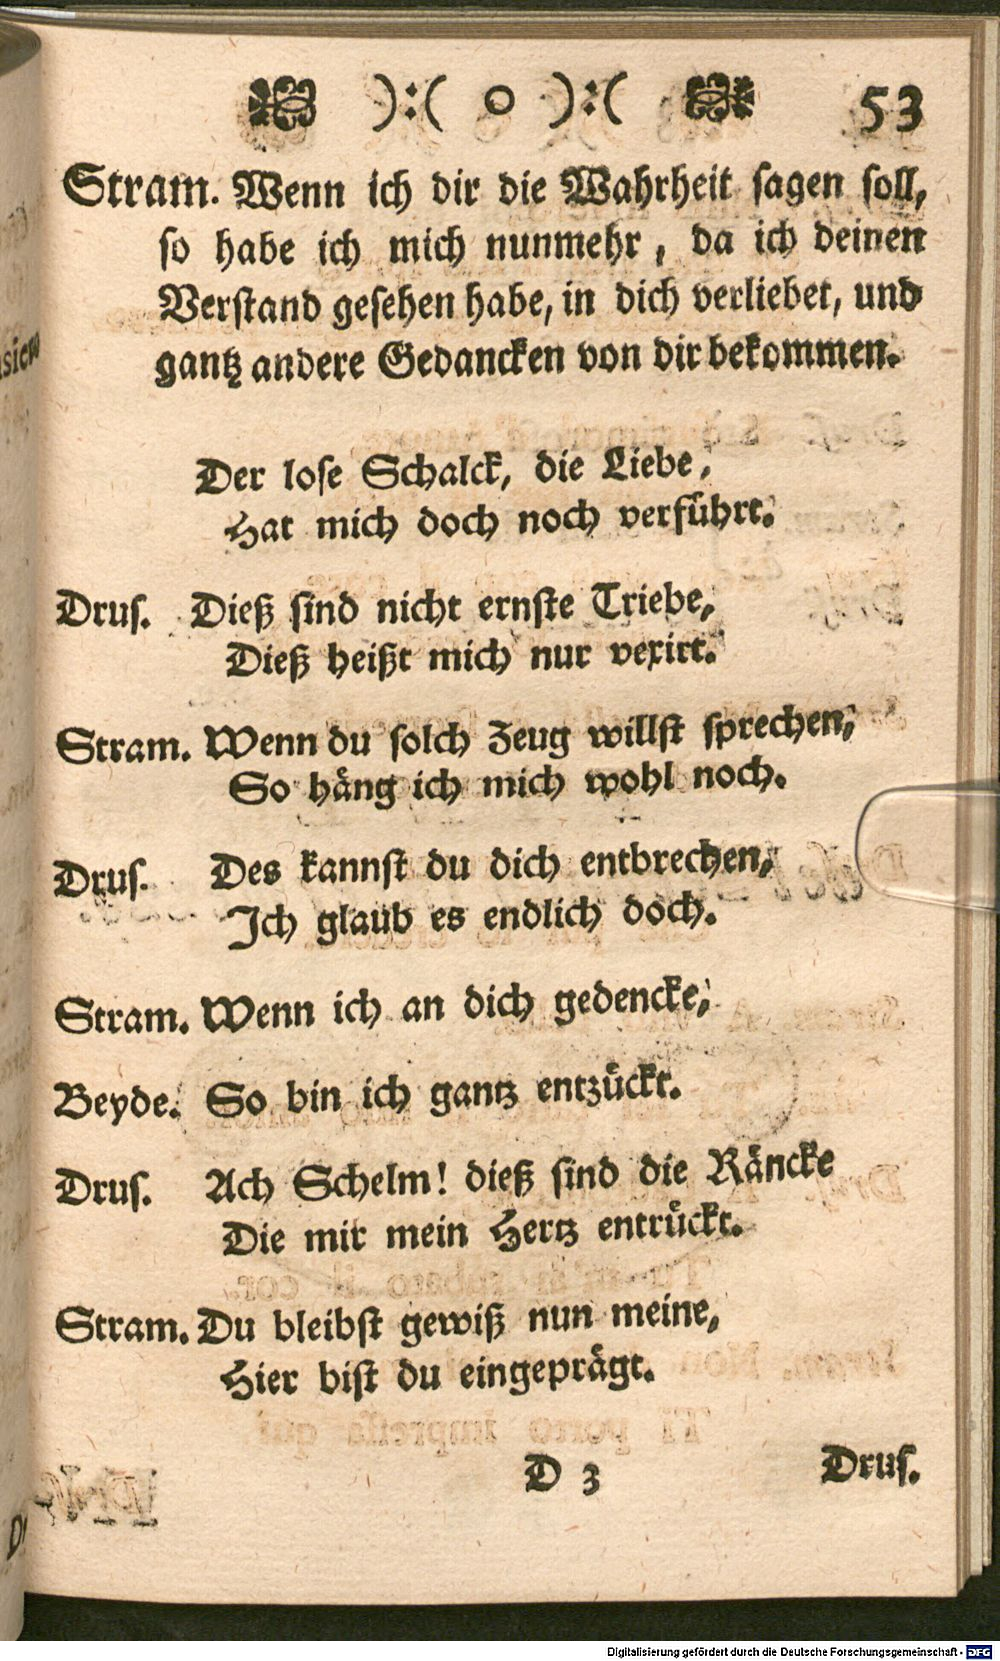 ):( o ):( 53
Stram. Wenn ich dir die Wahrheit sagen soll,
so habe ich mich nunmehr, da ich deinen
Verstand gesehen habe, in dich verliebet, und
gantz andere Gedancken von dir bekommen.
Der lose Schalck, die Liebe,
Hat mich doch noch verführt.
Drus. Dieß sind nicht ernste Triebe,
Dieß heißt mich nur vexirt.
Stram. Wenn du solch Zeug willst sprechen,
So häng ich mich wohl noch.
Drus. Des kannst du dich entbrechen,
Ich glaub es endlich doch.
Stram. Wenn ich an dich gedencke,
Beyde. So bin ich gantz entzückt.
Drus. Ach Schelm! dieß sind die Räncke
Die mir mein Hertz entrückt.
Stram. Du bleibst gewiß nun meine,
Hier bist du eingeprägt.
D 3 Drus.
Digitalisierung gefördert durch die Deutsche Forschungsgemeinschaft - DFG